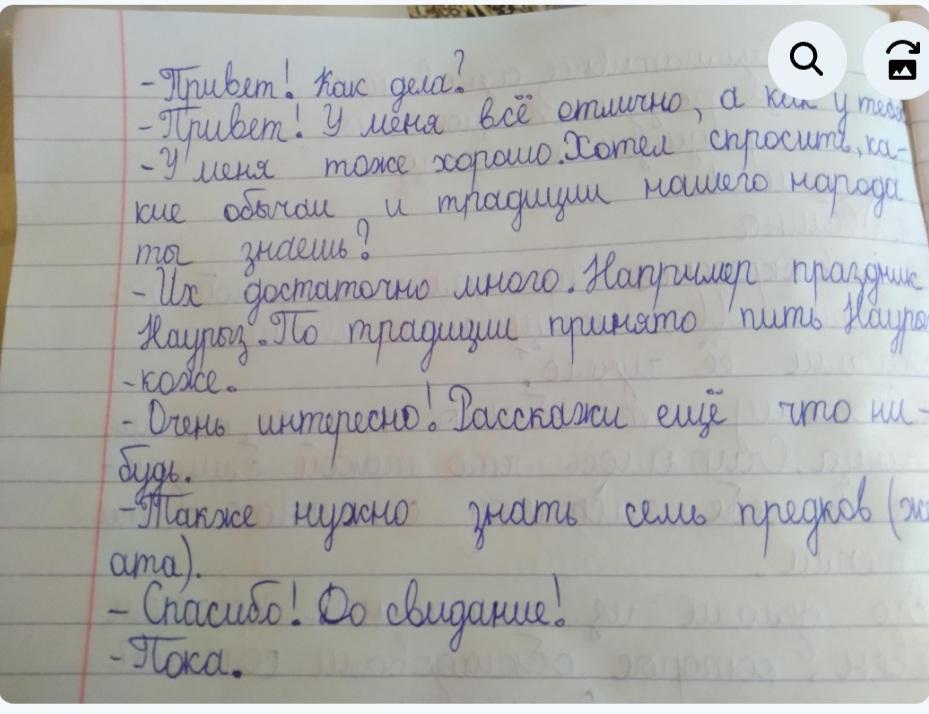 - Привет! Как дела?
- Привет! У меня всё отлично, а как у тебя
- У меня тоже хорошо. Хотел спросить, ка-
кие обычаи и традиции нашего народа
ты знаешь?
- Их достаточно много. Например праздник
Наурыз. По традиции принято пить Науры
-коже.
- Очень интересно! Расскажи ещё что ни-
будь.
- Также нужно знать семь предков (же
ата).
- Спасибо! До свидание!
- Пока.